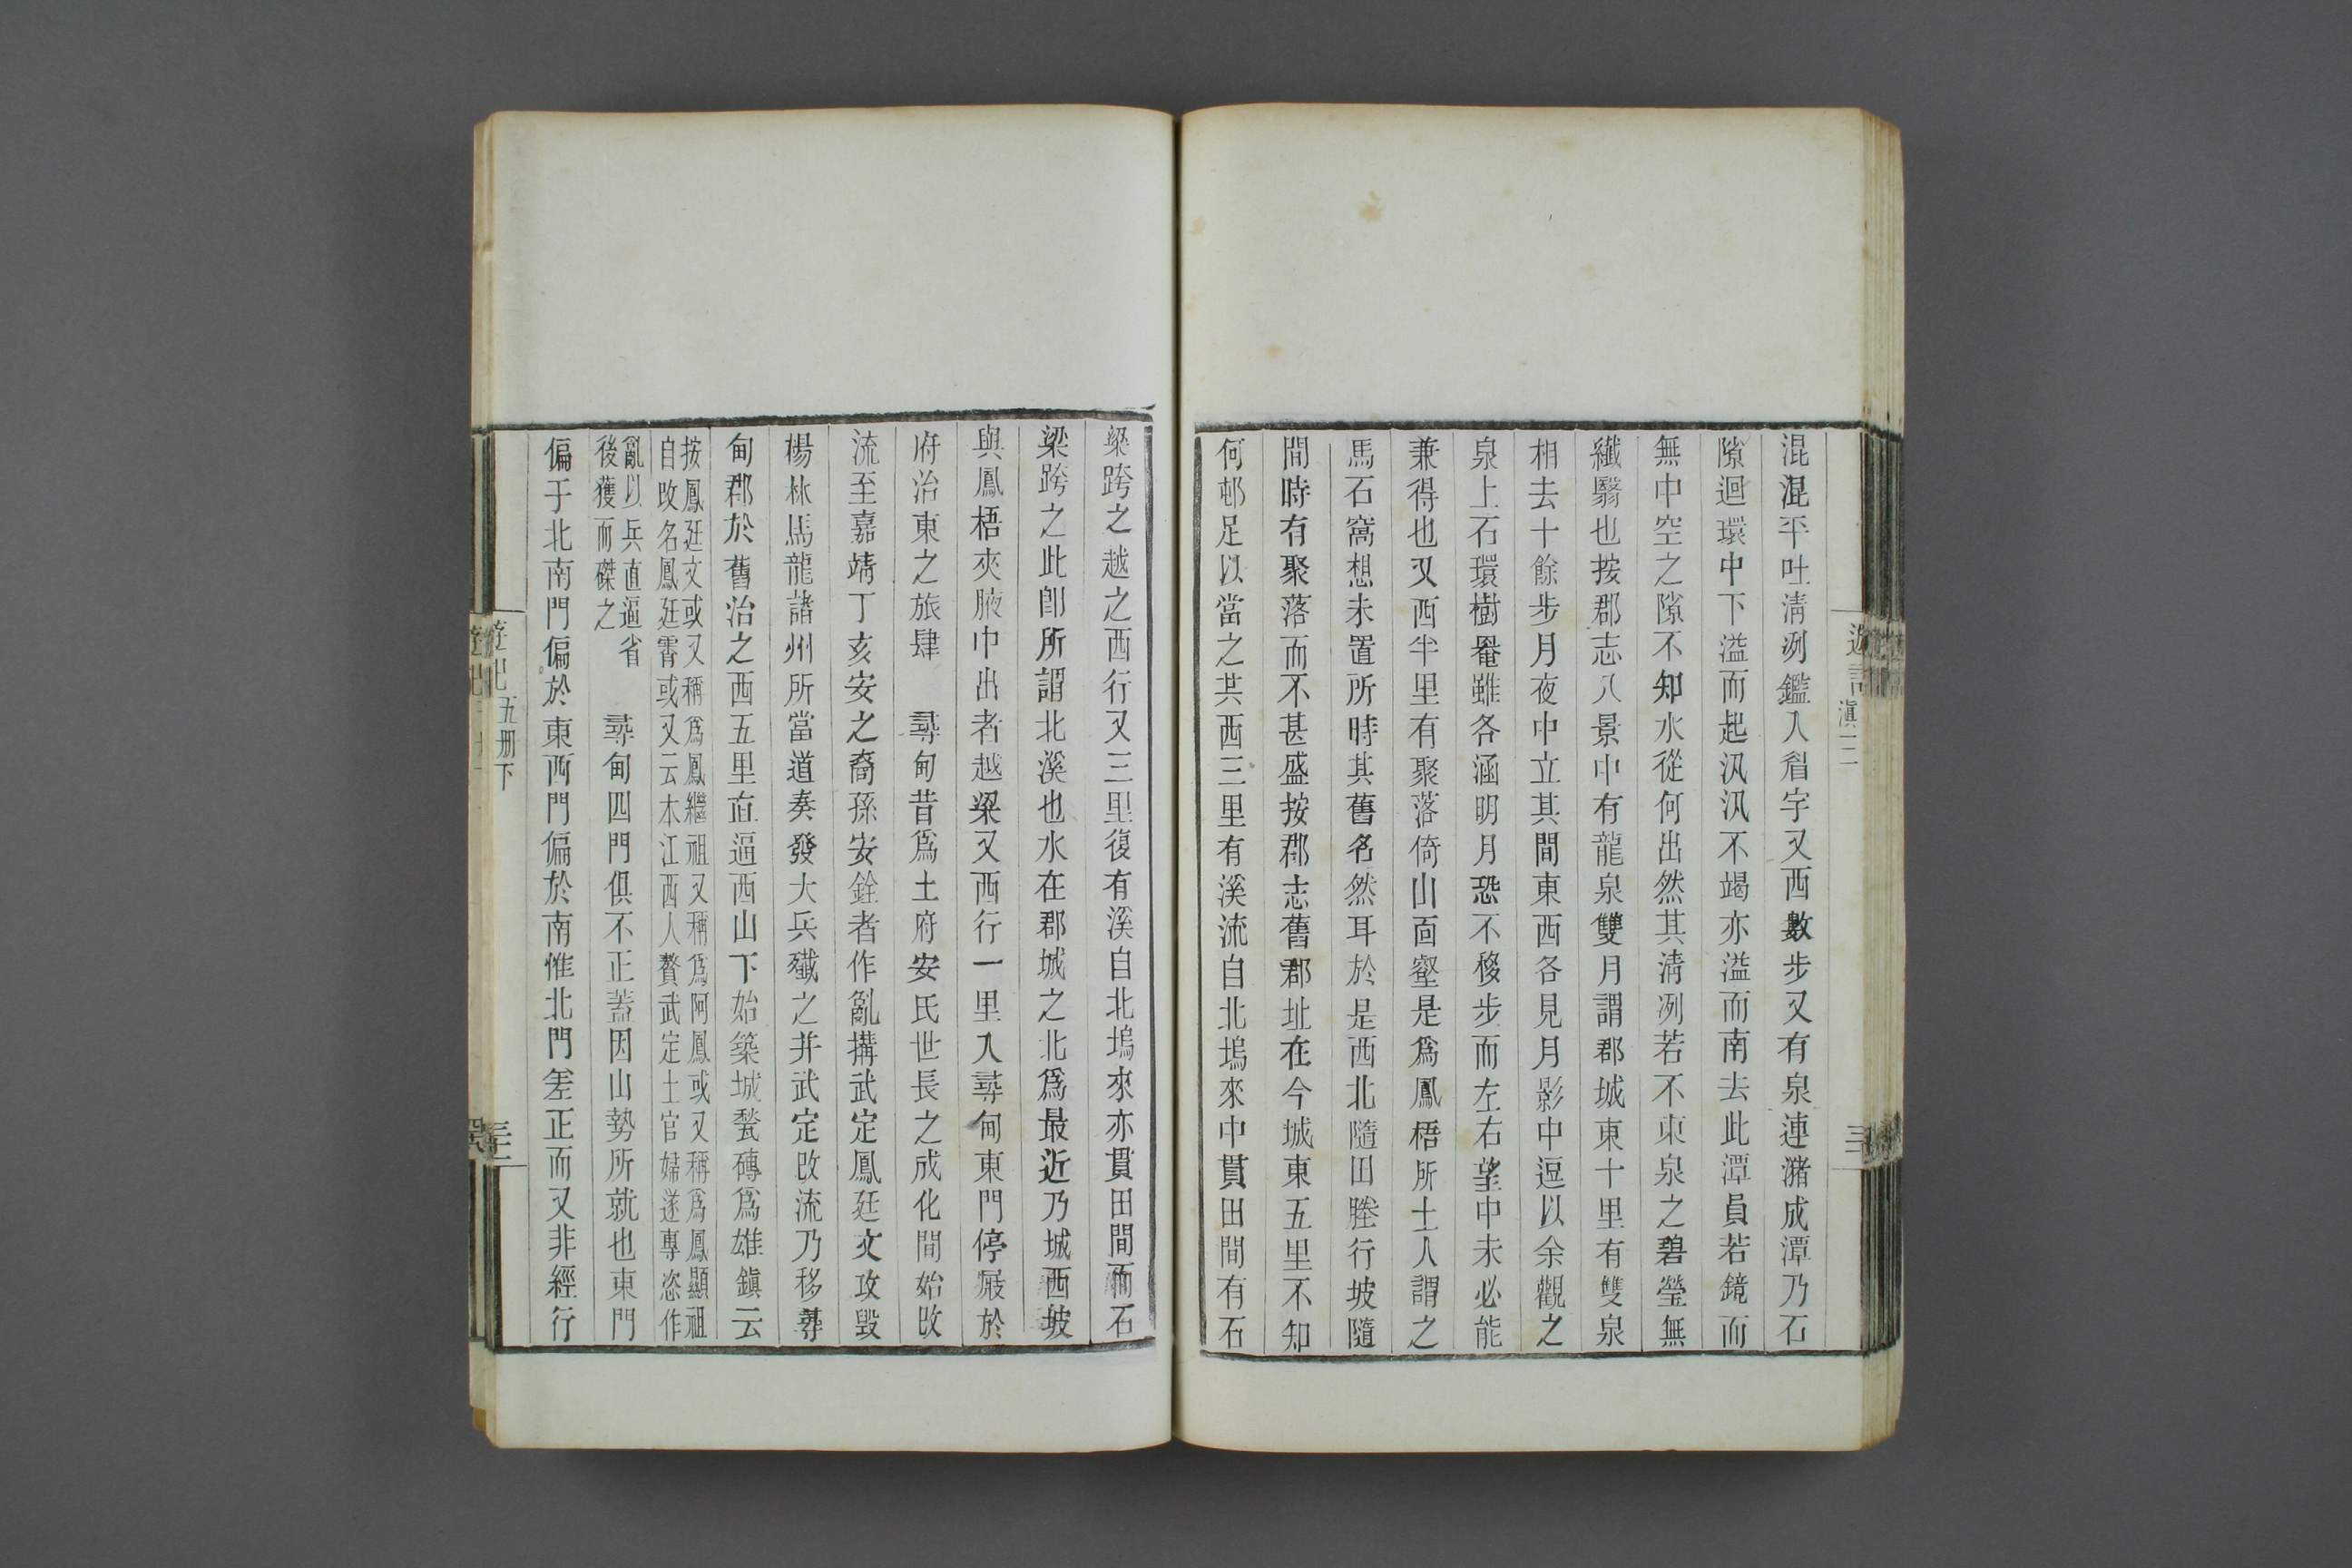 混混平吐清冽鑑人眉宇又西數步又有泉連潴成潭乃石
隙迴環中下溢而起汎汎不竭亦溢而南去此潭員若鏡而
無中空之隙不知水從何出然其清冽若不東泉之碧瑩無
纖翳也按郡志八景中有龍泉雙月謂郡城東十里有雙泉
相去十餘步月夜中立其間東西各見月影中逗以余觀之
泉上石環樹罨雖各涵明月恐不移步而左右望中未必能
兼得也又西半里有聚落倚山面壑是爲鳳梧所土人謂之
馬石窩想未置所時其舊名然耳於是西北隨田塍行坡隨
間時有聚落而不甚盛按郡志舊郡址在今城東五里不知
何邨足以當之其西三里有溪流自北塢來中貫田間有石
梁跨之越之西行又三里復有溪自北塢來亦貫田間而石
梁跨之此卽所謂北溪也水在郡城之北爲最近乃城西坡
與鳳梧夾腋中出者越梁又西行一里入尋甸東門停屐於
府治東之旅肆 尋甸昔爲土府安氏世長之成化間始改
流至嘉靖丁亥安之裔孫安銓者作亂搆武定鳳廷文攻毀
楊林馬龍諸州所當道奏發大兵殲之并武定改流乃移尋
甸郡於舊治之西五里直逼西山下始築城甃磚爲雄鎭云
按鳳廷文或又稱爲鳳繼祖又稱爲阿鳳或又稱爲鳳顯祖
自改名鳳廷霄或又云本江西人贅武定土官婦遂專恣作
亂以兵直逼省
後獲而磔之
尋甸四門俱不正蓋因山勢所就也東門
偏于北南門偏於東西門偏於南惟北門差正而又非經行
遊記
滇三
三
五册下